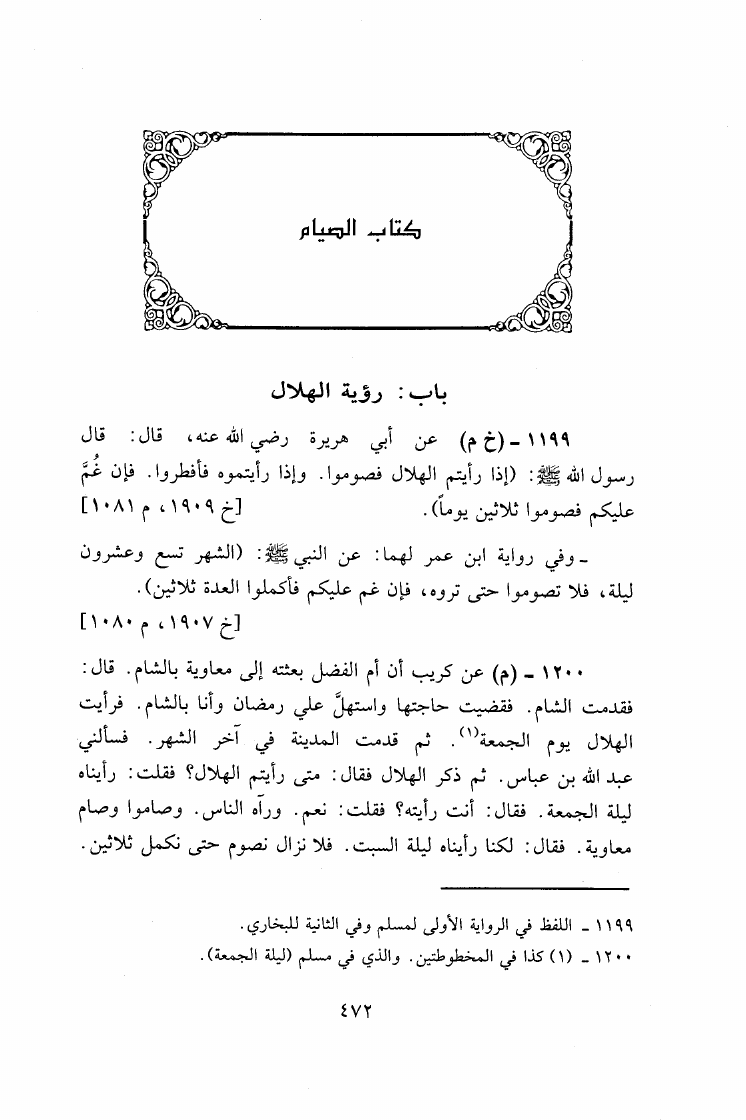 كتاب الصيام
باب: رؤية الهلال
١١٩٩ - (خ م) عن أبي هريرة رضي الله عنه، قال: قال
رسول الله ﷺ: (إذا رأيتم الهلال فصوموا. وإذا رأيتموه فأفطروا. فإن غُمَّ
عليكم فصوموا ثلاثين يوماً). [خ ١٩٠٩، م ١٠٨١]
- وفي رواية ابن عمر لهما: عن النبي ﷺ: (الشهر تسع وعشرون
ليلة، فلا تصوموا حتى تروه، فإن غم عليكم فأكملوا العدة ثلاثين).
[خ ١٩٠٧، م ١٠٨٠]
١٢٠٠ - (م) عن كريب أن أم الفضل بعثته إلى معاوية بالشام. قال:
فقدمت الشام. فقضيت حاجتها واستهلَّ علي رمضان وأنا بالشام. فرأيت
الهلال يوم الجمعة(١). ثم قدمت المدينة في آخر الشهر. فسألني
عبد الله بن عباس. ثم ذكر الهلال فقال: متى رأيتم الهلال؟ فقلت: رأيناه
ليلة الجمعة. فقال: أنت رأيته؟ فقلت: نعم. ورآه الناس. وصاموا وصام
معاوية. فقال: لكنا رأيناه ليلة السبت. فلا نزال نصوم حتى نكمل ثلاثين.
١١٩٩ - اللفظ في الرواية الأولى لمسلم وفي الثانية للبخاري.
١٢٠٠ - (١) كذا في المخطوطتين. والذي في مسلم (ليلة الجمعة).
٤٧٢